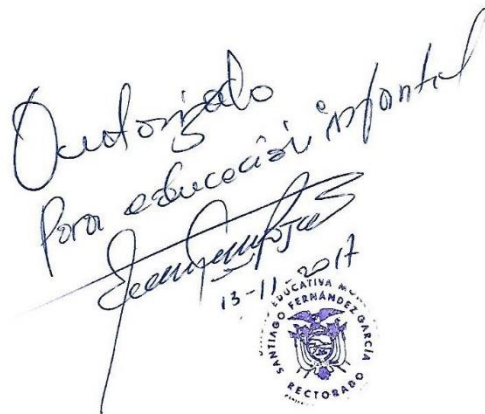 Autorizado
Para educación infantil
13-11-2017
EDUCATIVA
SANTIAGO FERNÁNDEZ GARCÍA
RECTORADO